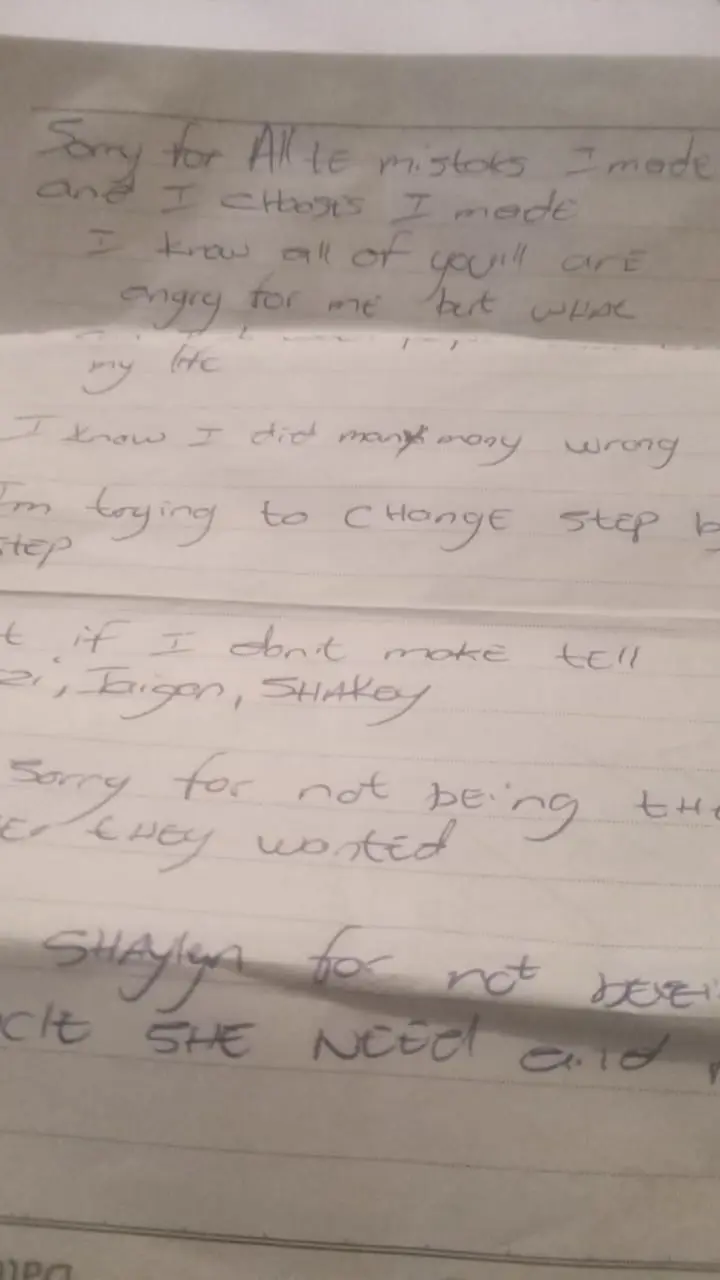 Sorry for All tE mistaks I made
and I cHooses I made
I know all of you'll arE
angry for mE but wHat
my life
I know I did many many wrong
I'm trying to cHangE stEp b
stEp
t if I don't makE tEll
zi, Jaigon, SHAKEy
Sorry for not bEing tHE
Er tHEy wantEd
SHAylyn for not
clE SHE NEEd and